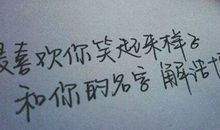 最喜欢你笑起来样子
和你的名字 解浩